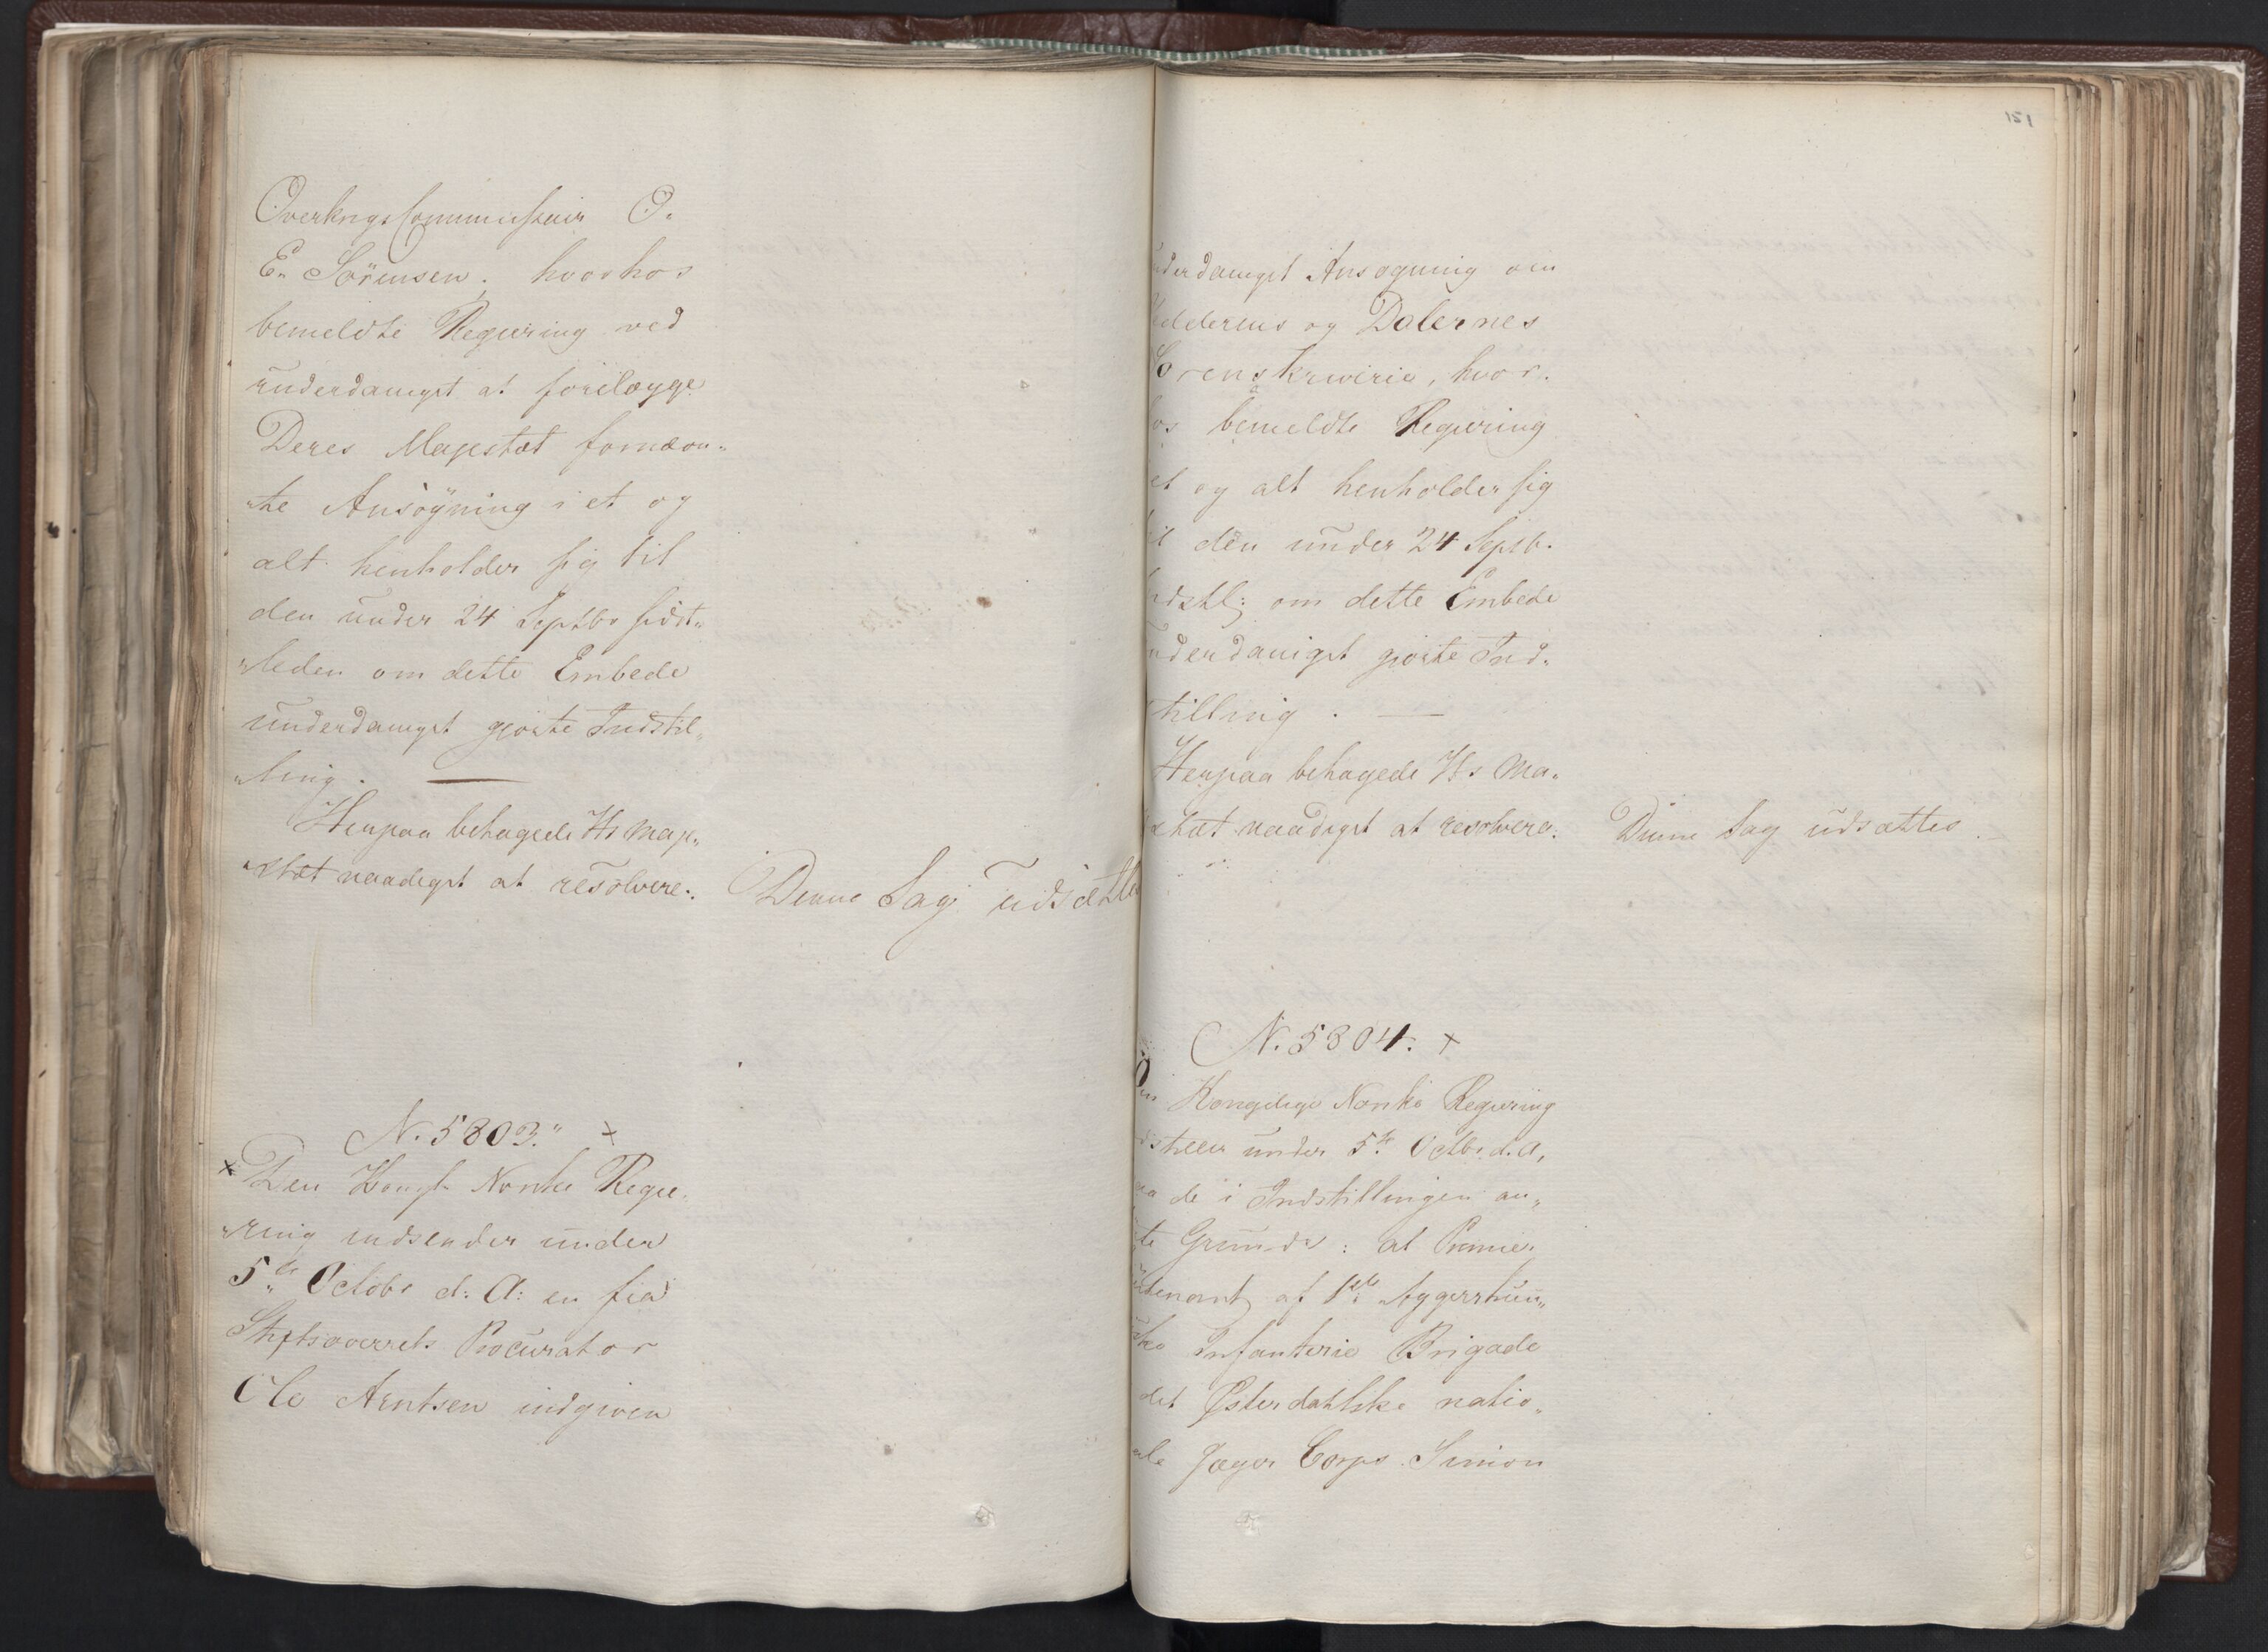 Overkrigs Commissair O.
E. Sörensen; hvorhos
bemeldte Regiering ved
underdanigst at forelægge
Deres Majestæt fornævn„
„te Ansögning i et og
alt henholder sig til
den under 24 Septbr sidst„
„leden om dette Embede
underdanigst gjorte Indstil„
„ling. —
Herpaa behagede Hs Maje„
„stæt naadigst at resolvere:
Denne Sag udsættes
N. 5803." +
+ Den Kongl. Norske Regie„
„ring indsender under
5te Octobr d: A: en fra
Stiftsoverrets Procurator
Ole Arntsen indgiven
151
underdanigst Ansøgning om
og Dalernes
Sorenskriverie, hvor„
hos bemeldte Regiering
et og alt henholder sig
til den under 24 Septbr.
sidstl: om dette Embede
underdanigst gjorte Ind„
stilling. —
Herpaa behagede Hs Ma„
jestæt naadigst at resolvere:
Denne Sag udsættes.
N. 5804. +
Den Kongelige Norske Regiering
indstiller under 5te Octbr. d. A.
paa de i Indstillingen an„
førte Grunde: at Premier
Lieutenant af 1ste Aggershuus„
ske Infanterie Brigade
det Østerdahlske natio„
nale Jæger Corps Simon